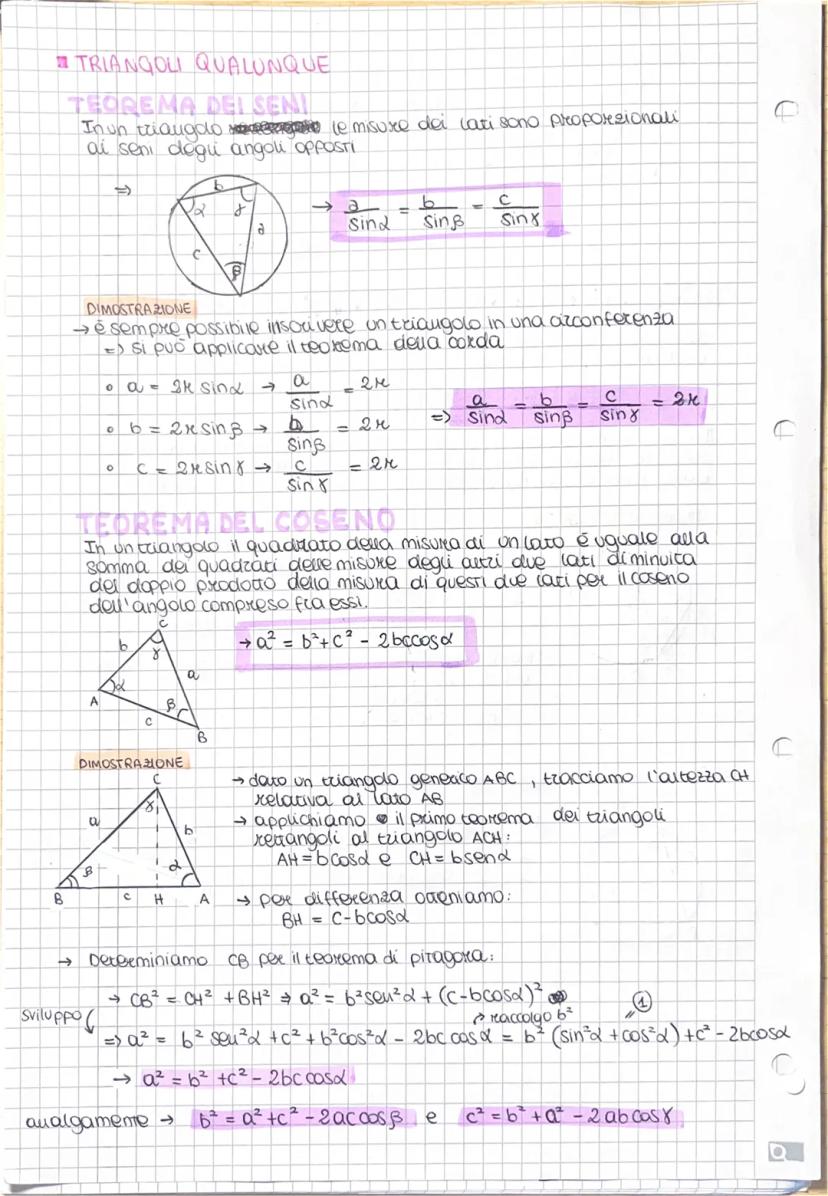 TRIANGOLI QUALUNQUE
TEOREMA DEI SENI
In un triangolo le misure dei lati sono proporzionali
ai seni degli angoli opposti
⇒ b α γ a c β → a/sinα = b/sinβ = c/sinγ
DIMOSTRAZIONE
→ é sempre possibile inscrivere un triangolo in una circonferenza
=) si può applicare il teorema della corda
• a = 2r sinα → a/sinα = 2r
• b = 2r sinβ → b/sinβ = 2r
• c = 2r sinγ → c/sinγ = 2r
=) a/sinα = b/sinβ = c/sinγ = 2r
TEOREMA DEL COSENO
In un triangolo il quadrato della misura di un lato é uguale alla
somma dei quadrati delle misure degli altri due lati diminuita
del doppio prodotto della misura di questi due lati per il coseno
dell'angolo compreso fra essi.
C b γ a A α β c B
→ a² = b² + c² - 2bccosα
DIMOSTRAZIONE
C γ a b β α B c H A
→ dato un triangolo generico ABC, tracciamo l'altezza CH
relativa al lato AB
→ applichiamo il primo teorema dei triangoli
rettangoli al triangolo ACH:
AH = bcosα e CH = bsenα
→ per differenza otteniamo:
BH = c-bcosα
→ Determiniamo CB per il teorema di pitagora:
→ CB² = CH² + BH² ⇒ a² = b²sen²α + (c-bcosα)²
sviluppo raccolgo b² 1
=) a² = b² sen²α + c² + b²cos²α - 2bc cosα = b² (sin²α + cos²α) + c² - 2bcosα
→ a² = b² + c² - 2bc cosα
analgamente → b² = a² + c² - 2accosβ e c² = b² + a² - 2abcosγ